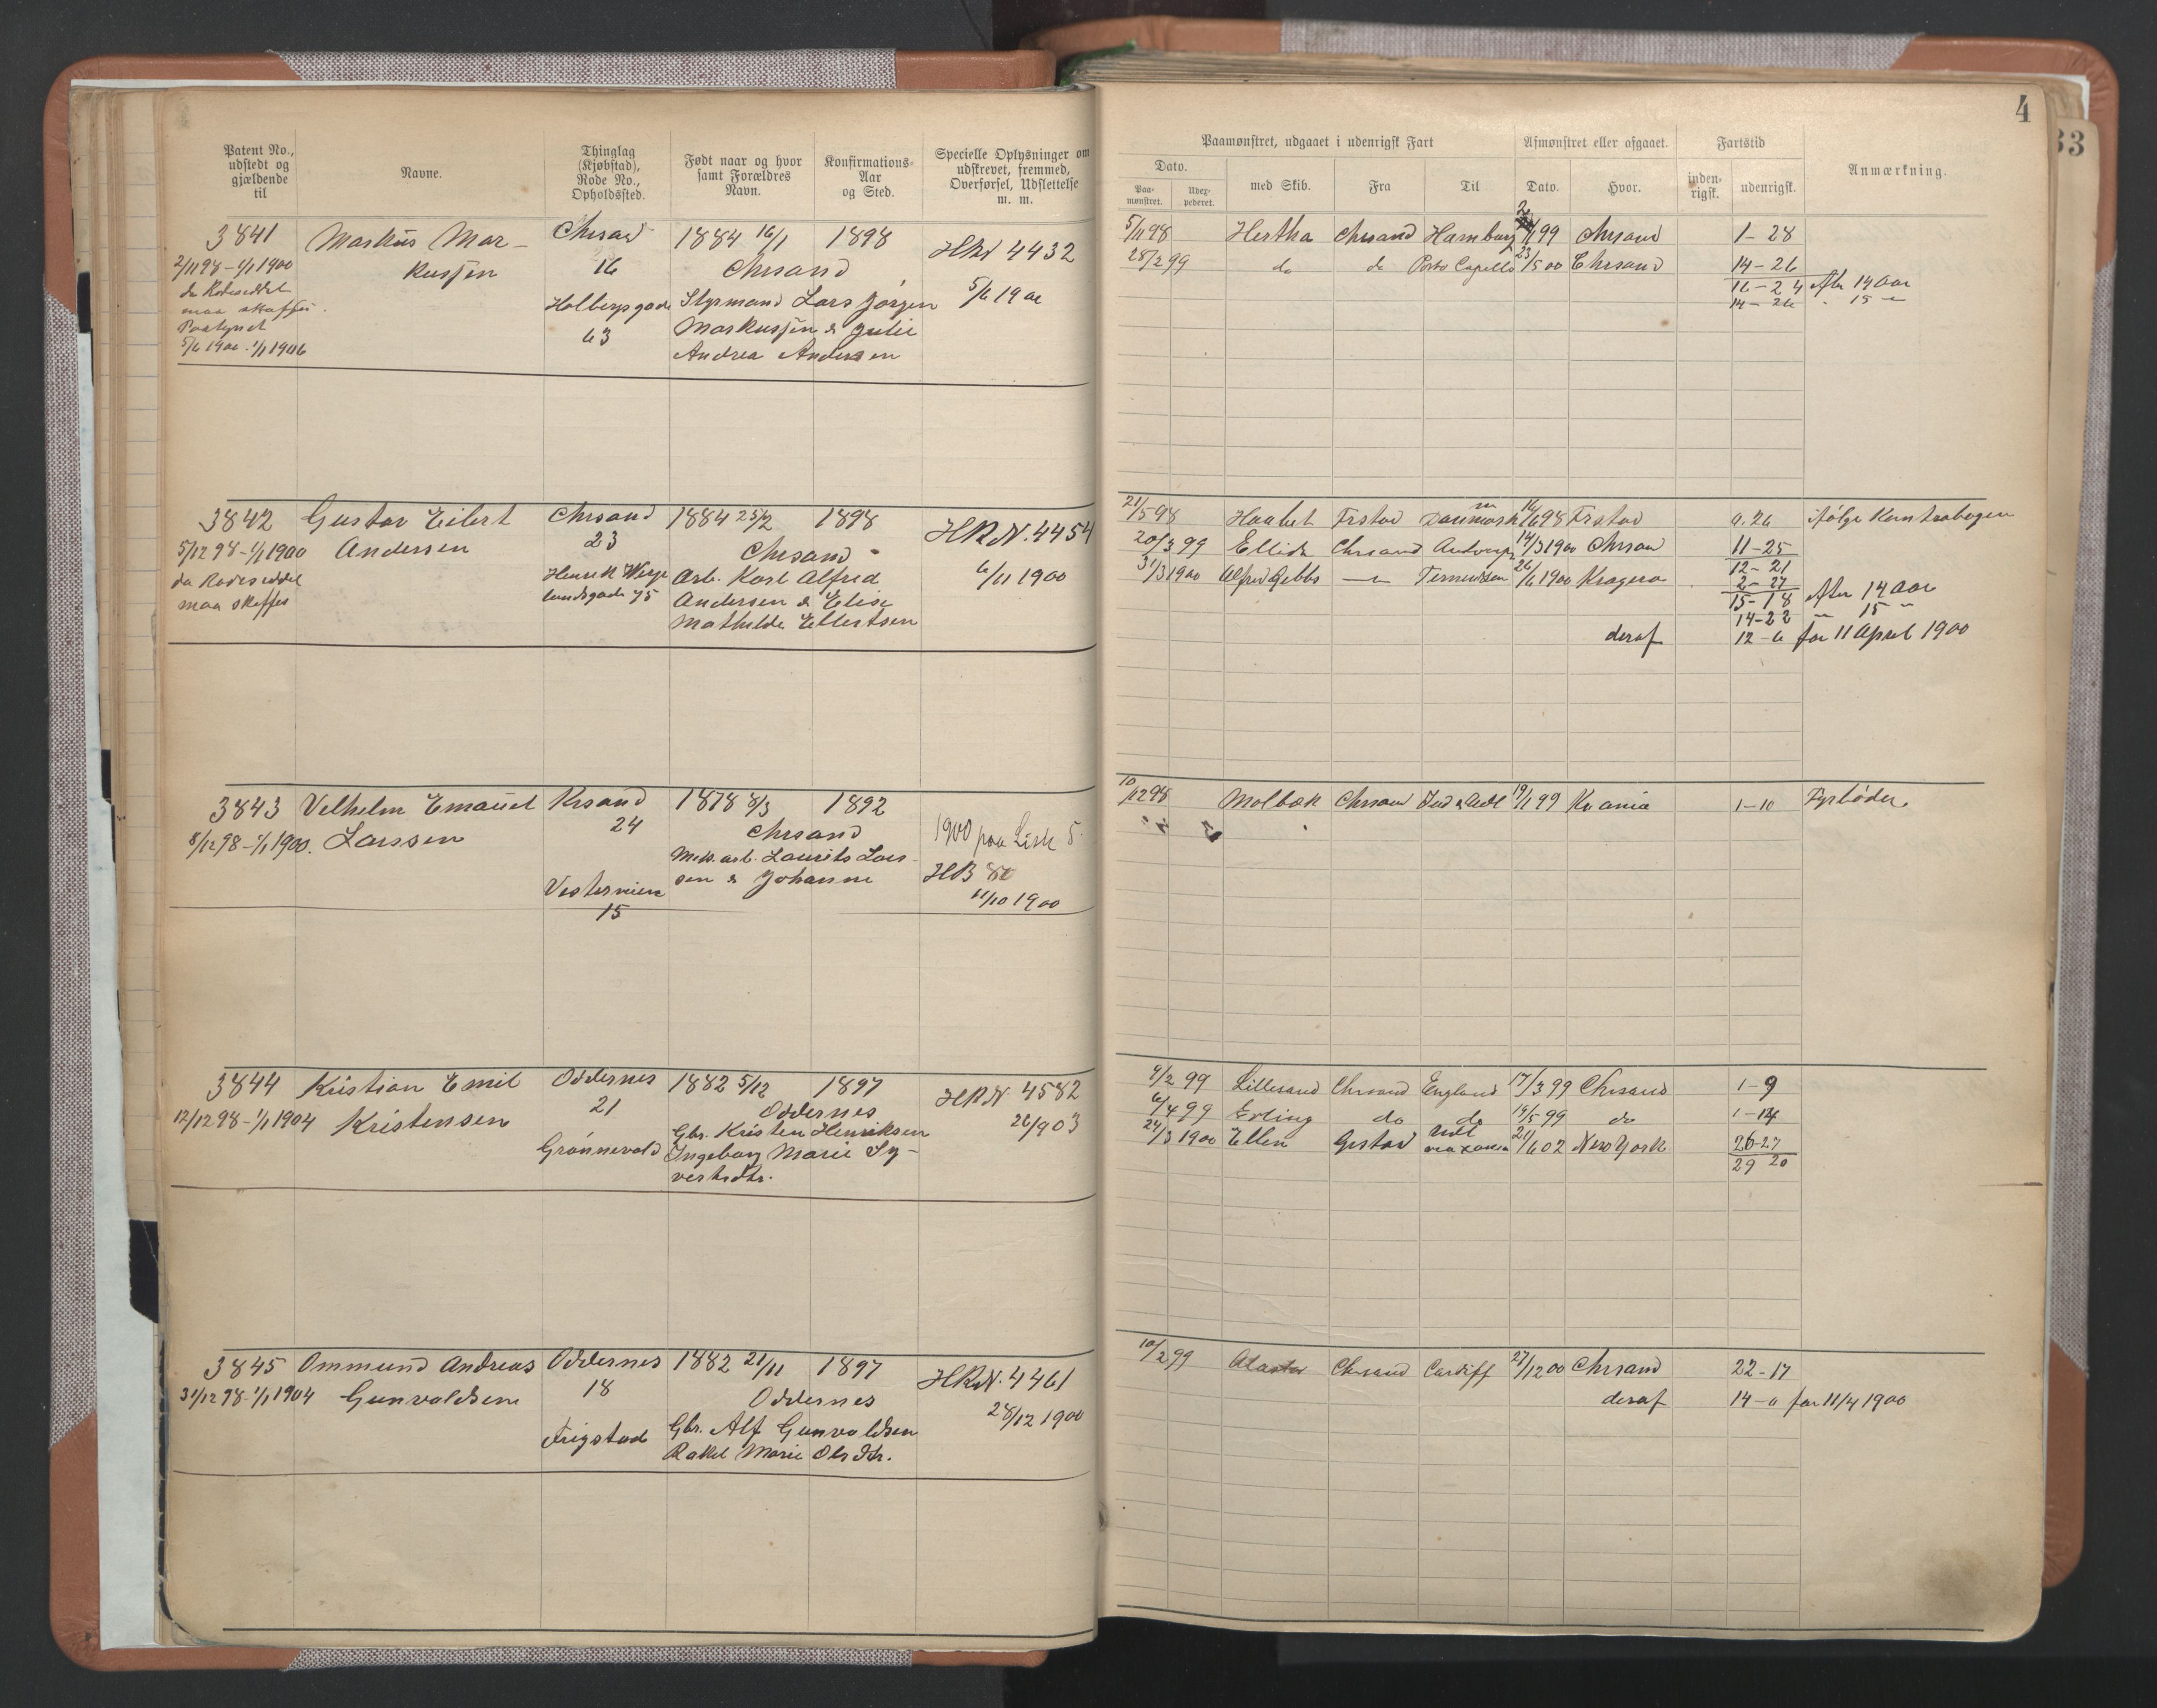 4
33
Patent No., udstedt og gjældende til
Navne.
Thinglag (Kjøbstad), Rode No., Opholdssted.
Født naar og hvor samt Forældres Navn.
Konfirmations-Aar og Sted.
Specielle Oplysninger om udskrevet, fremmed, Overførsel, Udslettelse m. m.
Paamønstret, udgaaet i udenrigsk Fart
Afmønstret eller afgaaet.
Fartstid
Anmærkning.
Dato.
Paa-mønstret.
Udex-pederet.
med Skib.
Fra
Til
Dato.
Hvor.
inden-rigsk.
udenrigsk.
3841 Markus Mar- Chrsand 1884 16/1 1898 HRN 4432
2/11 98 - 1/1 1900 kussen 16 Chrsand 5/6 1900
da Rodeseddel Holbergsgade Styrmand Lars Jørgen
maa skaffes. 63 Markussen & Julie
5/6 1900 - 1/1 1906 Andrea Andersen
5/11 98 Hertha Chrsand Hamburg 99 Chrsand 1-28
28/2 99 do do Porto Capello 23/5 00 Chrsand 14-26
16-24 efter 14 Aar
14-26 " 15 "
3842 Gustav Eilert Chrsand 1884 25/2 1898 HRN. 4454
5/12 98 - 1/1 1900 Andersen 23 Chrsand 6/11 1900
da Rodeseddel Henrik Werge Arb. Karl Alfred
maa skaffes landsgade 75 Andersen & Elise
Mathilde Ellertsen
21/5 98 Haabet Frstad Danmark 16/6 98 Frstad 0.26 ifølge Kontrabogen
20/3 99 Ellida Chrsand Antwerp 14/3 1900 Chrsand 11-25
31/3 1900 Alfred Gibbs — Terneuzen 26/6 1900 Kragerø 12-21
2-27
15-18 efter 14 Aar
14-22 " 15 "
deraf 12-6 før 11 April 1900
3843 Vilhelm Emanuel Krsand 1878 8/3 1892
8/12 98 - 1/1 1900. Larssen 24 Chrsand 1900 paa Liste 5
Mek. arb. Laurits Lars-
Vesterveien sen & Johanne HB 80
15 11/10 1900
10/12 98 Molbæk Chrsand 19/1 99 Krania 1-10 Fyrbøder
3844 Kristian Emil Oddernes 1882 5/12 1897 HRN. 4582
12/12 98 - 1/1 1904 Kristensen 21 Oddernes 26/9 03
Gbr. Kristen Henriksen
Grønnevold Ingeborg Marie Sy-
vertsdtr.
4/2 99 Lillesand Chrsand England 17/3 99 Chrsand 1-9
6/4 99 Erling do do 19/5 99 do 1-14
24/3 1900 Ellen 21/6 02 New York 26-27
29 20
3845 Ommund Andreas Oddernes 1882 21/11 1897 HRN. 4461
31/12 98 - 1/1 1904 Gunvaldsen 18 Oddernes 28/12 1900
Frigstad Gbr. Alf Gunvaldsen
Rakel Marie Olsdtr.
10/2 99 Chrsand Cardiff 27/12 00 Chrsand 22-17
deraf 14-0 før 11/4 1900